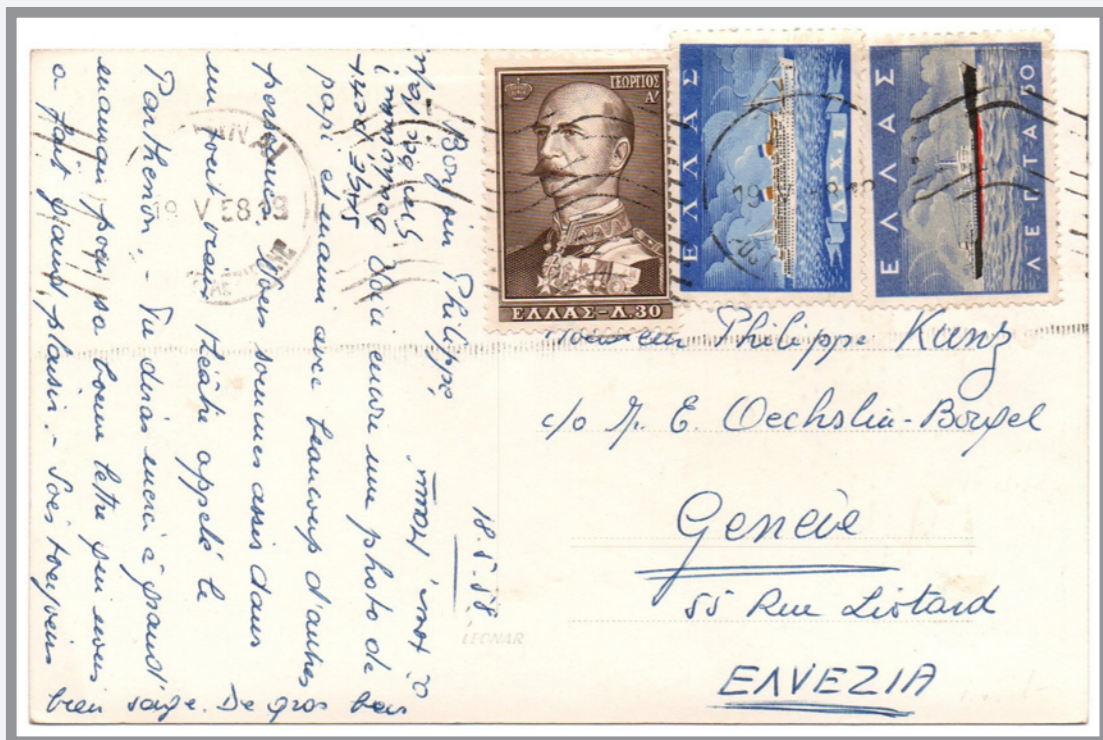 18.5.58.
Bonjour Philippe,
Voici encore une photo de
papi et mami avec beaucoup d'autres
personnes. Nous sommes assis dans
un tout vieux théâtre appelé le
Parthenon. - Tu diras merci à grand'
maman pour sa bonne lettre qui nous
a fait grand plaisir. - Sois toujours
bien sage. De gros bais
ΓΕΩΡΓΙΟΣ
Α'
ΕΛΛΑΣ-Λ.30
ΕΛΛΑΣ
ΔΡΧ.1
ΕΛΛΑΣ
ΛΕΠΤΑ 50
19 V 58
Monsieur Philippe Kunz
c/o M. E. Oechslin-Bougel
Genève
55 Rue Liotard
ΕΛVEZIA
LEONAR